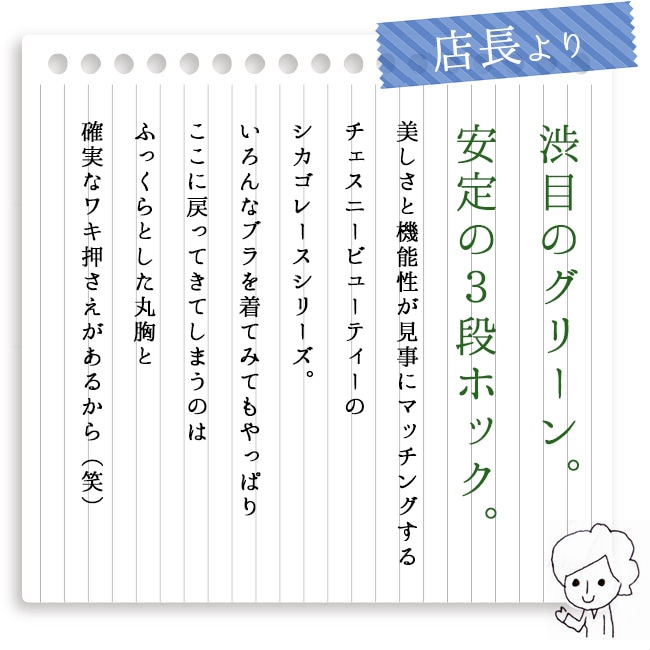 店長より
渋目のグリーン。
安定の３段ホック。
美しさと機能性が見事にマッチングする
チェスニービューティーの
シカゴレースシリーズ。
いろんなブラを着てみてもやっぱり
ここに戻ってきてしまうのは
ふっくらとした丸胸と
確実なワキ押さえがあるから（笑）